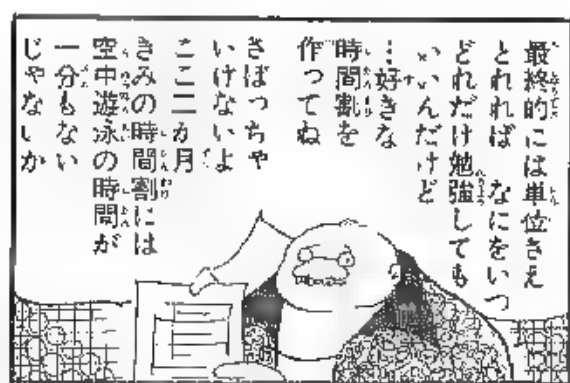 最終的には単位さえ
とれれば なにをいつ
どれだけ勉強しても
いいんだけど
…好きな
時間割を
作ってね
さぼっちゃ
いけないよ
ここ二か月
きみの時間割には
空中遊泳の時間が
一分もない
じゃないか